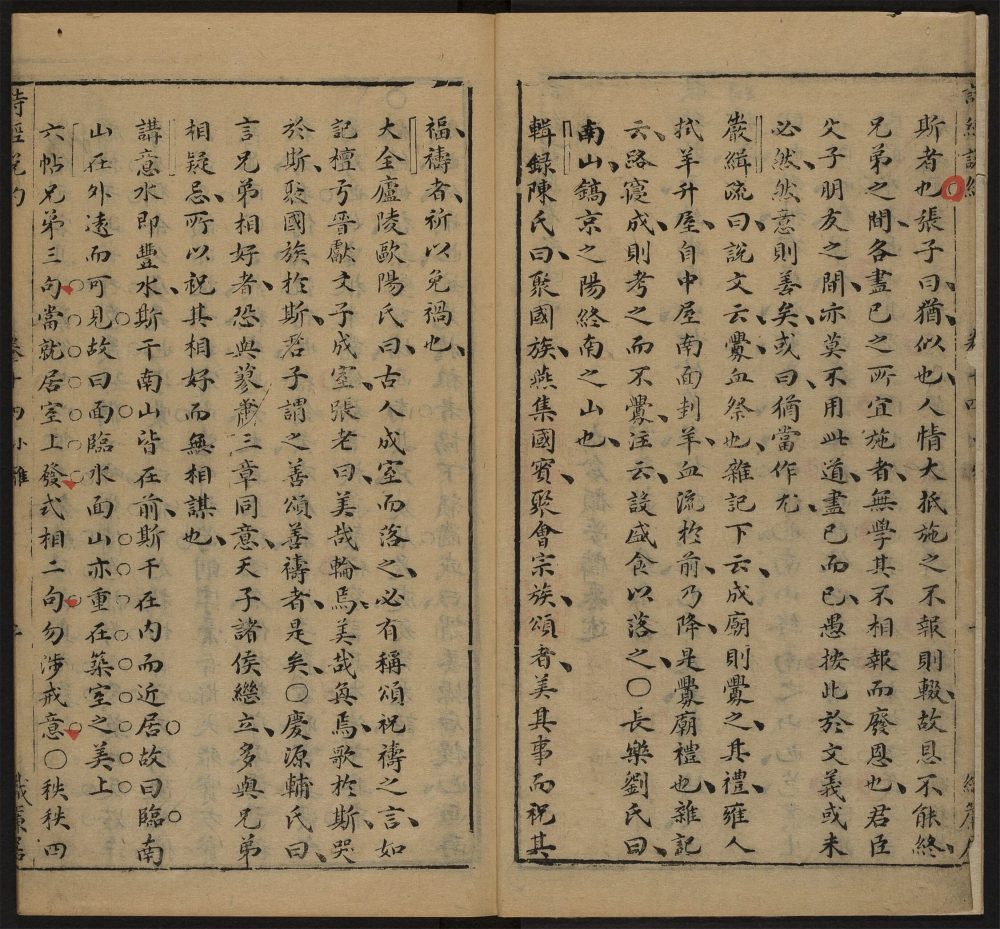 斯者也張子曰猶似也人情大抵施之不報則輟故恩不能終
兄弟之間各盡已之所宜施者無學其不相報而廢恩也君臣
父子朋友之間亦莫不用此道盡已而已愚按此於文義或未
必然然意則善矣或曰猶當作尤
嚴緝疏曰說文云釁血祭也雜記下云成廟則釁之其禮雍人
拭羊升屋自中屋南面刲羊血流於前乃降是釁廟禮也雜記
云路寢成則考之而不釁注云設盛食以落之○長樂劉氏曰
南山鎬京之陽終南之山也
輯録陳氏曰聚國族燕集國賓聚會宗族頌者美其事而祝其
福禱者祈以免禍也
大全廬陵歐陽氏曰古人成室而落之必有稱頌祝禱之言如
記檀弓晉獻文子成室張老曰美哉輪焉美哉奐焉歌於斯哭
於斯聚國族於斯君子謂之善頌善禱者是矣○慶源輔氏曰
言兄弟相好者恐與蓼蕭三章同意天子諸侯繼立多與兄弟
相疑忌所以祝其相好而無相謀也
講意水即豐水斯干南山皆在前斯干在內而近居故曰臨南
山在外遠而可見故曰面臨水面山亦重在築室之美上
六帖兄弟三句當就居室上發式相二句勿涉戒意○秩秩四
詩經說約
卷十四小雅